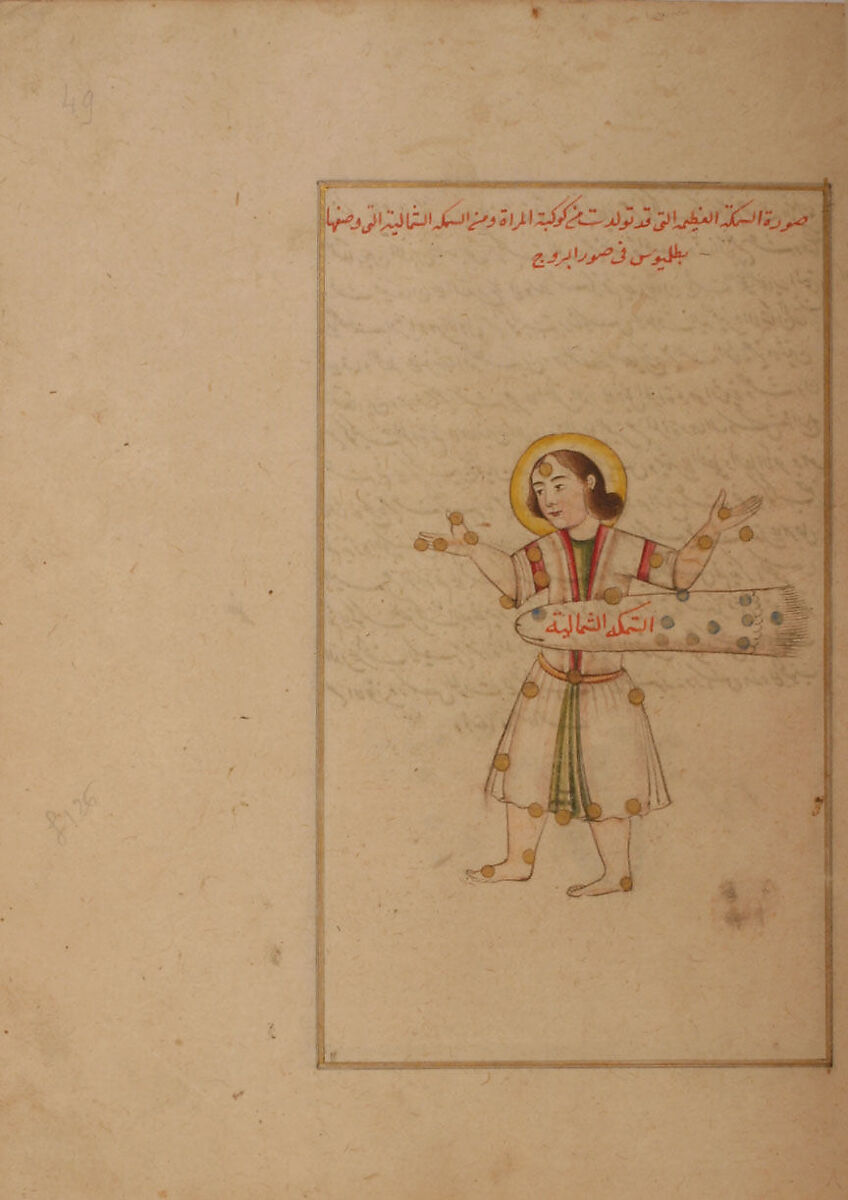 49
صورة السمكة العظيمه التى قد تولدت من كوكبة المراة ومن السمكه الشمالية التى وصفها
بطلميوس فى صور البروج
السمكه الشمالية